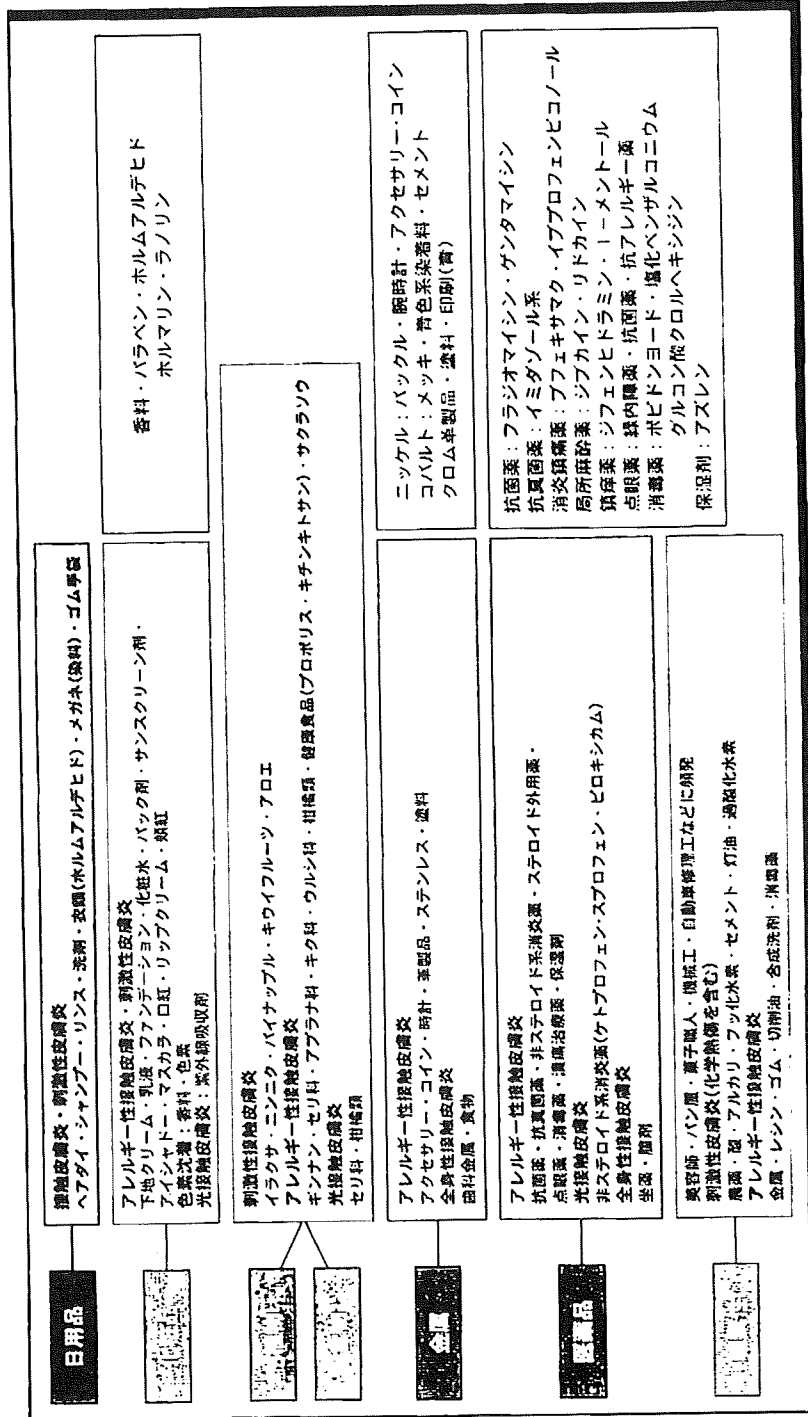 日用品
接触皮膚炎・刺激性皮膚炎
ヘアダイ・シャンプー・リンス・洗剤・衣類(ホルムアルデヒド)・メガネ(染料)・ゴム手袋
アレルギー性接触皮膚炎・刺激性皮膚炎
下地クリーム・乳液・ファンデーション・化粧水・パック剤・サンスクリーン剤・
アイシャドー・マスカラ・口紅・リップクリーム・頬紅
色素沈着：香料・色素
光接触皮膚炎：紫外線吸収剤
香料・パラベン・ホルムアルデヒド
ホルマリン・ラノリン
刺激性接触皮膚炎
イラクサ・ニンニク・パイナップル・キウイフルーツ・アロエ
アレルギー性接触皮膚炎
ギンナン・セリ科・アブラナ科・キク科・ウルシ科・柑橘類・健康食品(プロポリス・キチンキトサン)・サクラソウ
光接触皮膚炎
セリ科・柑橘類
金属
アレルギー性接触皮膚炎
アクセサリー・コイン・時計・革製品・ステンレス・塗料
全身性接触皮膚炎
歯科金属・食物
ニッケル：バックル・腕時計・アクセサリー・コイン
コバルト：メッキ・青色系染着料・セメント
クロム革製品・塗料・印刷(青)
医薬品
アレルギー性接触皮膚炎
抗菌薬・抗真菌薬・非ステロイド系消炎薬・ステロイド外用薬・
点眼薬・消毒薬・潰瘍治療薬・保湿剤
光接触皮膚炎
非ステロイド系消炎薬(ケトプロフェン・スプロフェン・ピロキシカム)
全身性接触皮膚炎
坐薬・膣剤
抗菌薬：フラジオマイシン・ゲンタマイシン
抗真菌薬：イミダゾール系
消炎鎮痛薬：ブフェキサマク・イブプロフェンピコノール
局所麻酔薬：ジブカイン・リドカイン
鎮痒薬：ジフェンヒドラミン・l－メントール
点眼薬：緑内障薬・抗菌薬・抗アレルギー薬
消毒薬：ポビドンヨード・塩化ベンザルコニウム
グルコン酸クロルヘキシジン
保湿剤：アズレン
美容師・パン屋・菓子職人・機械工・自動車修理工などに頻発
刺激性皮膚炎(化学熱傷を含む)
農薬・酸・アルカリ・フッ化水素・セメント・灯油・過酸化水素
アレルギー性接触皮膚炎
金属・レジン・ゴム・切削油・合成洗剤・消毒薬